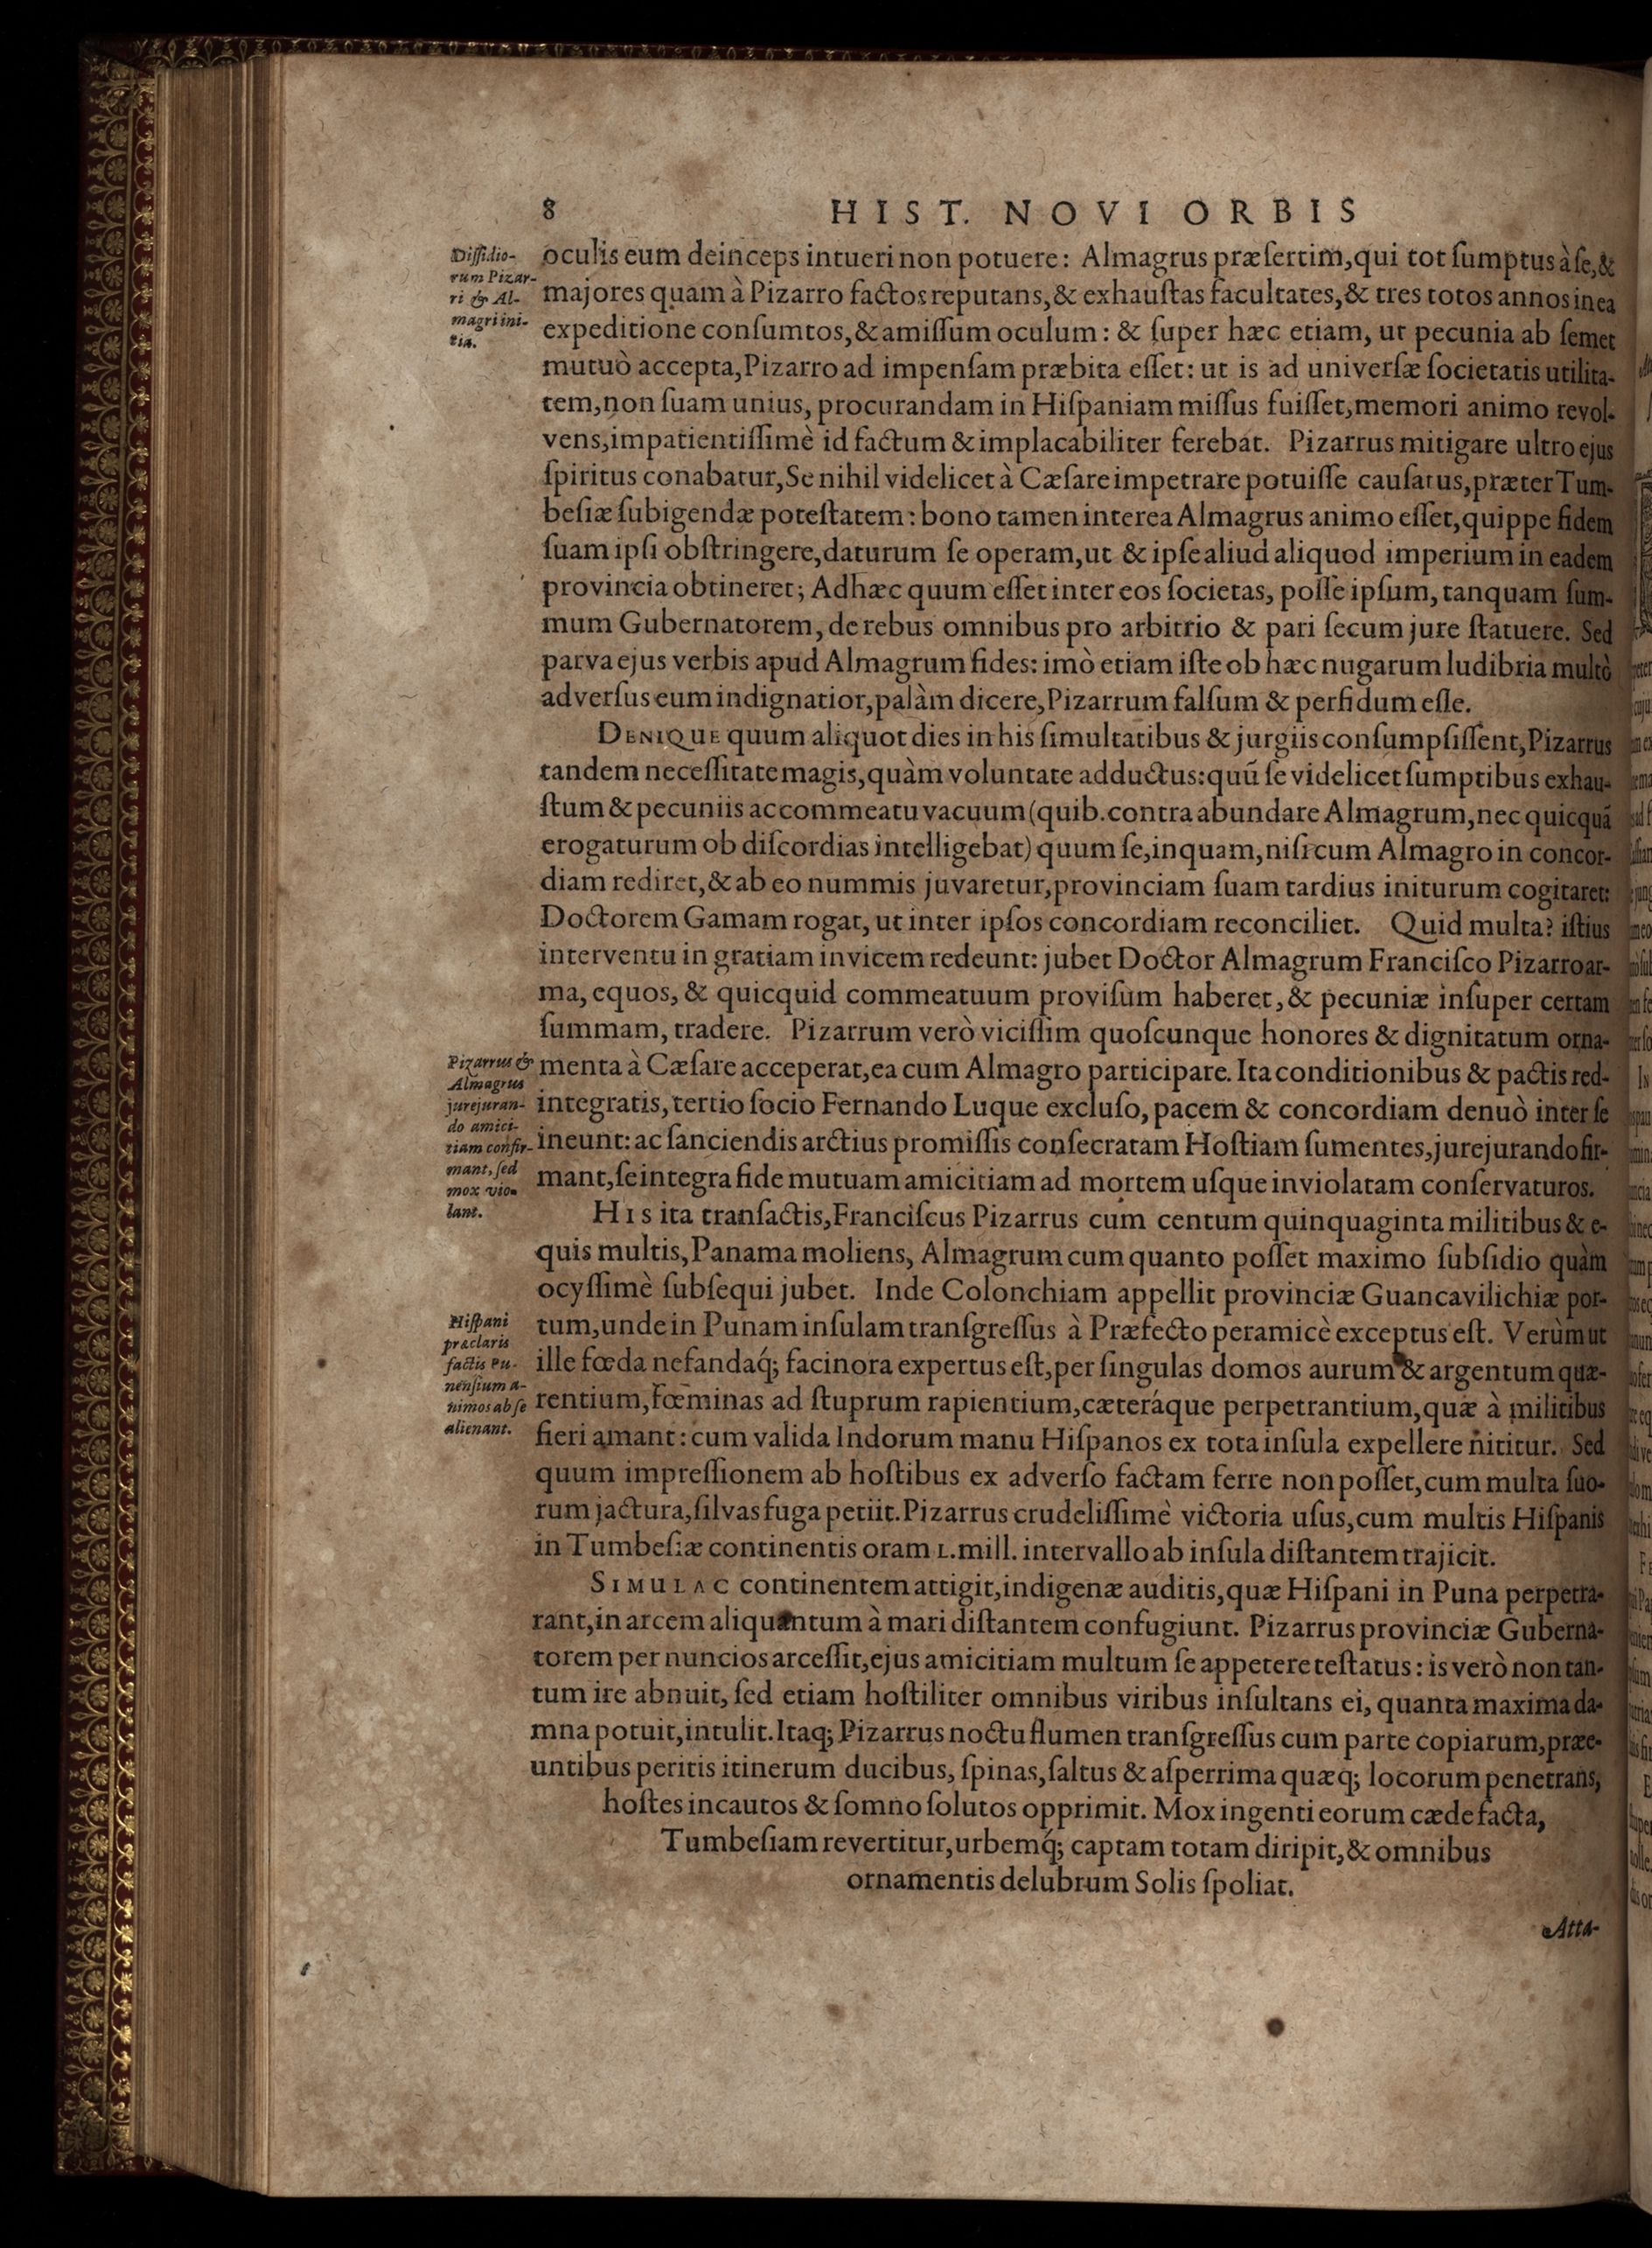 8 HIST. NOVI ORBIS
Diſſidio-
rum Pizar-
ri & Al-
magri ini-
tia.
oculis eum deinceps intueri non potuere: Almagrus præſertim, qui tot ſumptus à ſe, &
majores quam à Pizarro factos reputans, & exhauſtas facultates, & tres totos annos in ea
expeditione conſumtos, & amiſſum oculum: & ſuper hæc etiam, ut pecunia ab ſemet
mutuò accepta, Pizarro ad impenſam præbita eſſet: ut is ad univerſæ ſocietatis utilita-
tem, non ſuam unius, procurandam in Hiſpaniam miſſus fuiſſet, memori animo revol-
vens, impatientiſſimè id factum & implacabiliter ferebat. Pizarrus mitigare ultro ejus
ſpiritus conabatur, Se nihil videlicet à Cæſare impetrare potuiſſe cauſatus, præter Tum-
beſiæ ſubigendæ poteſtatem: bono tamen interea Almagrus animo eſſet, quippe fidem
ſuam ipſi obſtringere, daturum ſe operam, ut & ipſe aliud aliquod imperium in eadem
provincia obtineret; Adhæc quum eſſet inter eos ſocietas, poſſe ipſum, tanquam ſum-
mum Gubernatorem, de rebus omnibus pro arbitrio & pari ſecum jure ſtatuere. Sed
parva ejus verbis apud Almagrum fides: imò etiam iſte ob hæc nugarum ludibria multò
adverſus eum indignatior, palàm dicere, Pizarrum falſum & perfidum eſſe.
DENIQUE quum aliquot dies in his ſimultatibus & jurgiis conſumpſiſſent, Pizarrus
tandem neceſſitate magis, quàm voluntate adductus: quū ſe videlicet ſumptibus exhau-
ſtum & pecuniis ac commeatu vacuum (quib. contra abundare Almagrum, nec quicquã
erogaturum ob diſcordias intelligebat) quum ſe, inquam, niſi cum Almagro in concor-
diam rediret, & ab eo nummis juvaretur, provinciam ſuam tardius initurum cogitaret:
Doctorem Gamam rogat, ut inter ipſos concordiam reconciliet. Quid multa? iſtius
interventu in gratiam invicem redeunt: jubet Doctor Almagrum Franciſco Pizarro ar-
ma, equos, & quicquid commeatuum proviſum haberet, & pecuniæ inſuper certam
ſummam, tradere. Pizarrum verò viciſſim quoſcunque honores & dignitatum orna-
Pizarrus &
Almagrus
jurejuran-
do amici-
tiam confir-
mant, ſed
mox vio-
lant.
menta à Cæſare acceperat, ea cum Almagro participare. Ita conditionibus & pactis red-
integratis, tertio ſocio Fernando Luque excluſo, pacem & concordiam denuò inter ſe
ineunt: ac ſanciendis arctius promiſſis conſecratam Hoſtiam ſumentes, jurejurando fir-
mant, ſe integra fide mutuam amicitiam ad mortem uſque inviolatam conſervaturos.
HIS ita tranſactis, Franciſcus Pizarrus cum centum quinquaginta militibus & e-
quis multis, Panama moliens, Almagrum cum quanto poſſet maximo ſubſidio quàm
ocyſſimè ſubſequi jubet. Inde Colonchiam appellit provinciæ Guancavilichiæ por-
Hiſpani
præclaris
factis Pu-
nenſium a-
nimos ab ſe
alienant.
tum, unde in Punam inſulam tranſgreſſus à Præfecto peramicè exceptus eſt. Verùm ut
ille fœda nefandaq́; facinora expertus eſt, per ſingulas domos aurum & argentum quæ-
rentium, Fœminas ad ſtuprum rapientium, cæteráque perpetrantium, quæ à militibus
fieri amant: cum valida Indorum manu Hiſpanos ex tota inſula expellere nititur. Sed
quum impreſſionem ab hoſtibus ex adverſo factam ferre non poſſet, cum multa ſuo-
rum jactura, ſilvas fuga petiit. Pizarrus crudeliſſimè victoria uſus, cum multis Hiſpanis
in Tumbeſiæ continentis oram L. mill. intervallo ab inſula diſtantem trajicit.
SIMULAC continentem attigit, indigenæ auditis, quæ Hiſpani in Puna perpetra-
rant, in arcem aliquantum à mari diſtantem confugiunt. Pizarrus provinciæ Guberna-
torem per nuncios arceſſit, ejus amicitiam multum ſe appetere teſtatus: is verò non tan-
tum ire abnuit, ſed etiam hoſtiliter omnibus viribus inſultans ei, quanta maxima da-
mna potuit, intulit. Itaq; Pizarrus noctu flumen tranſgreſſus cum parte copiarum, præe-
untibus peritis itinerum ducibus, ſpinas, ſaltus & aſperrima quæq; locorum penetrans,
hoſtes incautos & ſomno ſolutos opprimit. Mox ingenti eorum cæde facta,
Tumbeſiam revertitur, urbemq́; captam totam diripit, & omnibus
ornamentis delubrum Solis ſpoliat.
Atta-